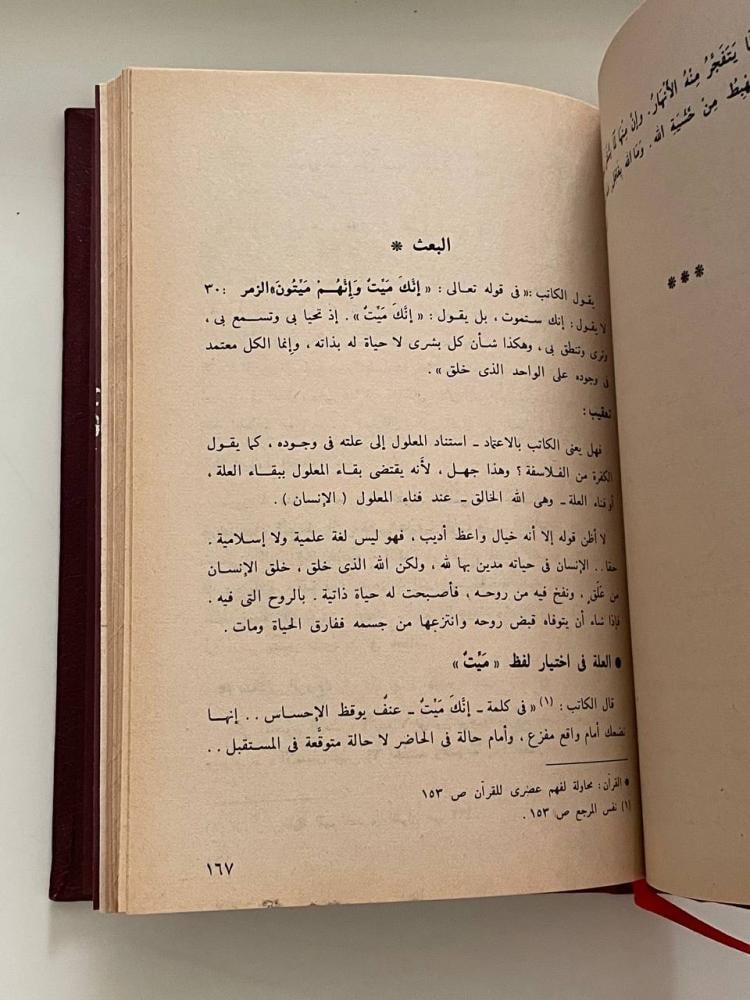 يَتَفَجَّرُ مِنْهُ الأَنْهَارُ. وإنْ مِنْهَا
يَهْبِطُ مِنْ خَشْيَةِ الله. وَمَا الله
***
البعث *
يقول الكاتب :« فى قوله تعالى : « إنَّكَ مَيْتٌ وَإِنَّهُمْ مَيْتُونَ»الزمر ٣٠:
لا يقول : إنك ستموت ، بل يقول : « إنَّكَ مَيْتٌ » . إذ تحيا بى وتسمع بى ،
وترى وتنطق بى ، وهكذا شأن كل بشرى لا حياة له بذاته ، وإنما الكل معتمد
فى وجوده على الواحد الذى خلق » .
تعقيب :
فهل يعنى الكاتب بالاعتماد ـ استناد المعلول إلى علته فى وجوده ، كما يقول
الكفرة من الفلاسفة ؟ وهذا جهل ، لأنه يقتضى بقاء المعلول ببقاء العلة ،
أو فناء العلة ـ وهى الله الخالق ـ عند فناء المعلول ( الإنسان ) .
لا أظن قوله إلا أنه خيال واعظ أديب ، فهو ليس لغة علمية ولا إسلامية .
حقا .. الإنسان فى حياته مدين بها لله ، ولكن الله الذى خلق ، خلق الإنسان
من عَلَقٍ ، ونفخ فيه من روحه ، فأصبحت له حياة ذاتية . بالروح التى فيه .
فإذا شاء أن يتوفاه قبض روحه وانتزعها من جسمه ففارق الحياة ومات .
● العلة فى اختيار لفظ « مَيْتٌ »
قال الكاتب : (١) « فى كلمة ـ إنَّكَ مَيْتٌ ـ عنفٌ يوقظ الإحساس .. إنهـا
تضعك أمام واقع مفزع ، وأمام حالة فى الحاضر لا حالة متوقَّعة فى المستقبل ..
● القرآن : محاولة لفهم عصْرى للقرآن ص ١٥٣
(١) نفس المرجع ص ١٥٣ .
١٦٧